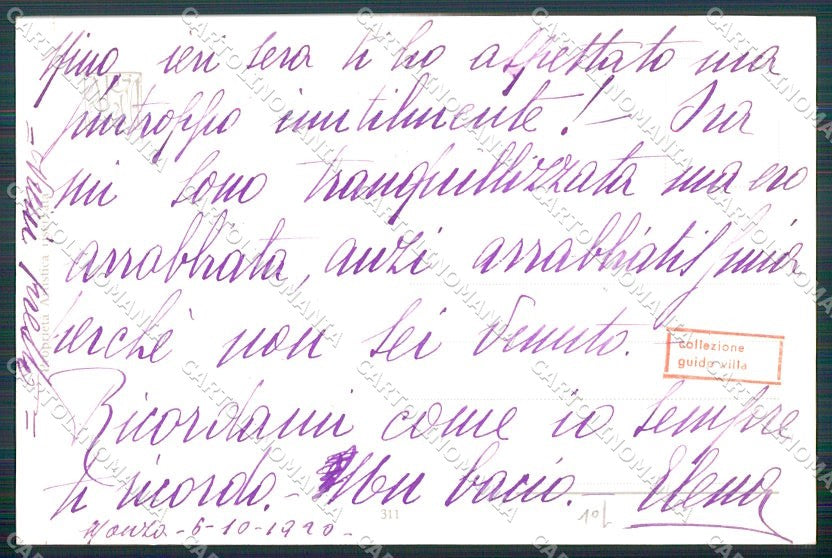 Nino, ieri sera ti ho aspettato ma
purtroppo inutilmente! - Ora
mi sono tranquillizzata ma ero
arrabbiata, anzi arrabbiatissima
perchè non sei venuto.
Ricordami come io sempre
ti ricordo. - Un bacio. - Elena
Monza - 6-10-1920 -
collezione
guido villa
311
Proprietà Artistica
CARTOLINOMANIA